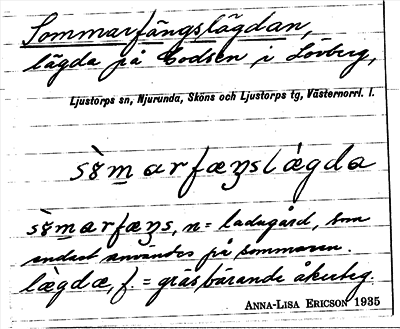 Sommarfängslägdan,
lägda på Bodsen i Lövberg,
Ljustorps sn, Njurunda, Sköns och Ljustorps tg, Västernorrl. l.
sò̀8m̲arfæŋslàgda
sò̀8m̲arfæŋs, n = ladugård, som
endast användes på sommaren.
lægdæ, f. = gräsbärande åkerteg.
ANNA-LISA ERICSON 1935